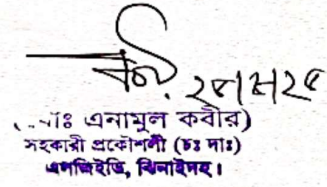 ২৮/৮/২৫
(মোঃ এনামুল কবীর)
সহকারী প্রকৌশলী (চঃ দাঃ)
এলজিইডি, ঝিনাইদহ।